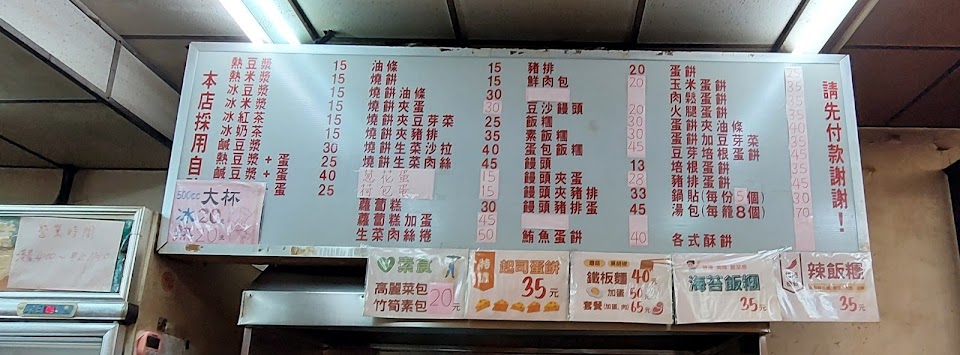 本店採用自
熱豆漿 15
熱米漿 15
冰豆漿 15
冰米漿 15
冰紅茶 15
油條 15
燒餅 15
燒餅油條 30
燒餅夾蛋 30
燒餅夾豆芽菜 25
燒餅夾豬排 35
燒餅生菜沙拉 40
燒餅生菜肉絲 45
荷包蛋 15
蘿蔔糕 30
蘿蔔糕加蛋 45
生菜肉絲捲 50
豬排 20
鮮肉包 20
豆沙饅頭 20
飯糰 30
素飯糰 30
蛋包飯糰 45
饅頭 13
饅頭夾蛋 28
饅頭夾豬排 33
饅頭豬排蛋 45
鮪魚蛋餅 40
蛋餅 25
玉米蛋餅 35
肉鬆蛋餅 35
火腿蛋餅 35
蛋餅夾油條 40
培根蛋餅
豬排蛋餅
鍋貼(每個5個) 30
湯包(每籠8個) 70
各式酥餅
請先付款謝謝!
500cc 大杯
冰 20
營業時間
素食
高麗菜包
竹筍素包
20元
起司蛋餅
35元
鐵板麵 40元
加蛋 50元
套餐(加蛋.肉) 65元
海苔飯糰
35元
辣飯糰
35元